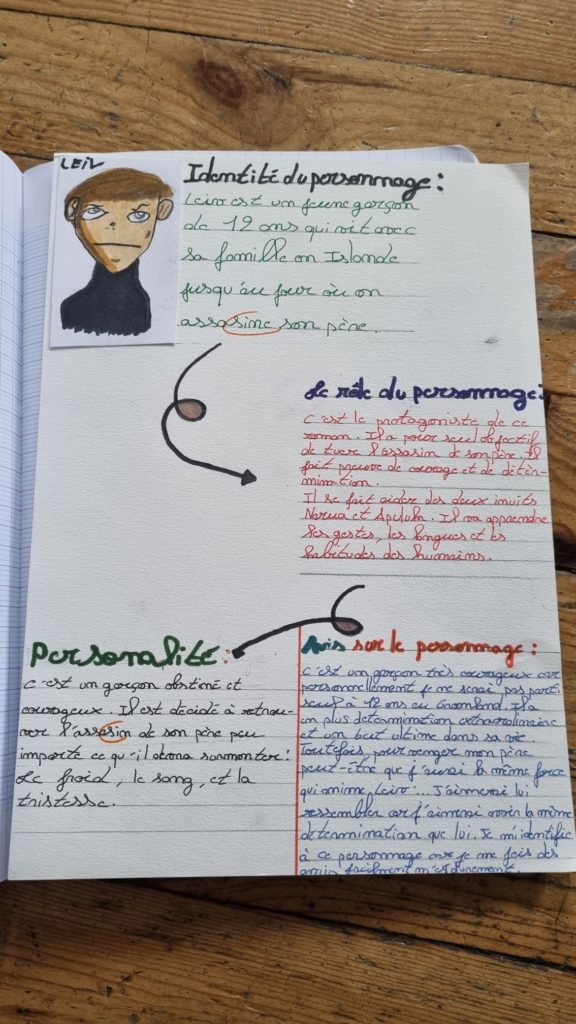 LEIV
Identité du personnage :
Leiv est un jeune garçon
de 12 ans qui vit avec
sa famille en Islande
jusqu'au jour où on
assasine son père.
Le rôle du personnage :
C'est le protagoniste de ce
roman. Il a pour seul objectif
de tuer l'assasin de son père. Il
fait preuve de courage et de déter-
mination.
Il se fait aider des deux inuits
Narua et Apuluk. Il va apprendre
les gestes, les langues et les
habitudes des humains.
Personalité :
C'est un garçon obstiné et
courageux. Il est décidé à retrou-
ver l'assasin de son père peu
importe ce qu'il devra surmonter :
Le froid, le sang, et la
tristesse.
Avis sur le personnage :
C'est un garçon très courageux car
personnellement je ne serai pas parti
seul à 12 ans au Groenland. Il a
en plus détermination extraordinaire
et un but ultime dans sa vie.
Toutefois, pour venger mon père
peut-être que j'aurai la même force
qui anime Leiv... J'aimerai lui
ressembler car j'aimerai avoir la même
détermination que lui. Je m'identifie
à ce personnage car je me fais des
amis facilement